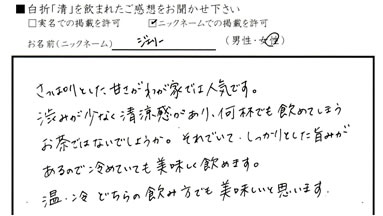 ■白折「清」を飲まれたご感想をお聞かせ下さい
□実名での掲載を許可 ☑ニックネームでの掲載を許可
お名前(ニックネーム) ジェリー (男性・女性)
さっぱりとした甘さがわが家では人気です。
渋みが少なく清涼感があり、何杯でも飲めてしまう
お茶ではないでしょうか。それでいて、しっかりとした旨みが
あるので冷めていても美味しく飲めます。
温・冷 どちらの飲み方でも美味しいと思います。